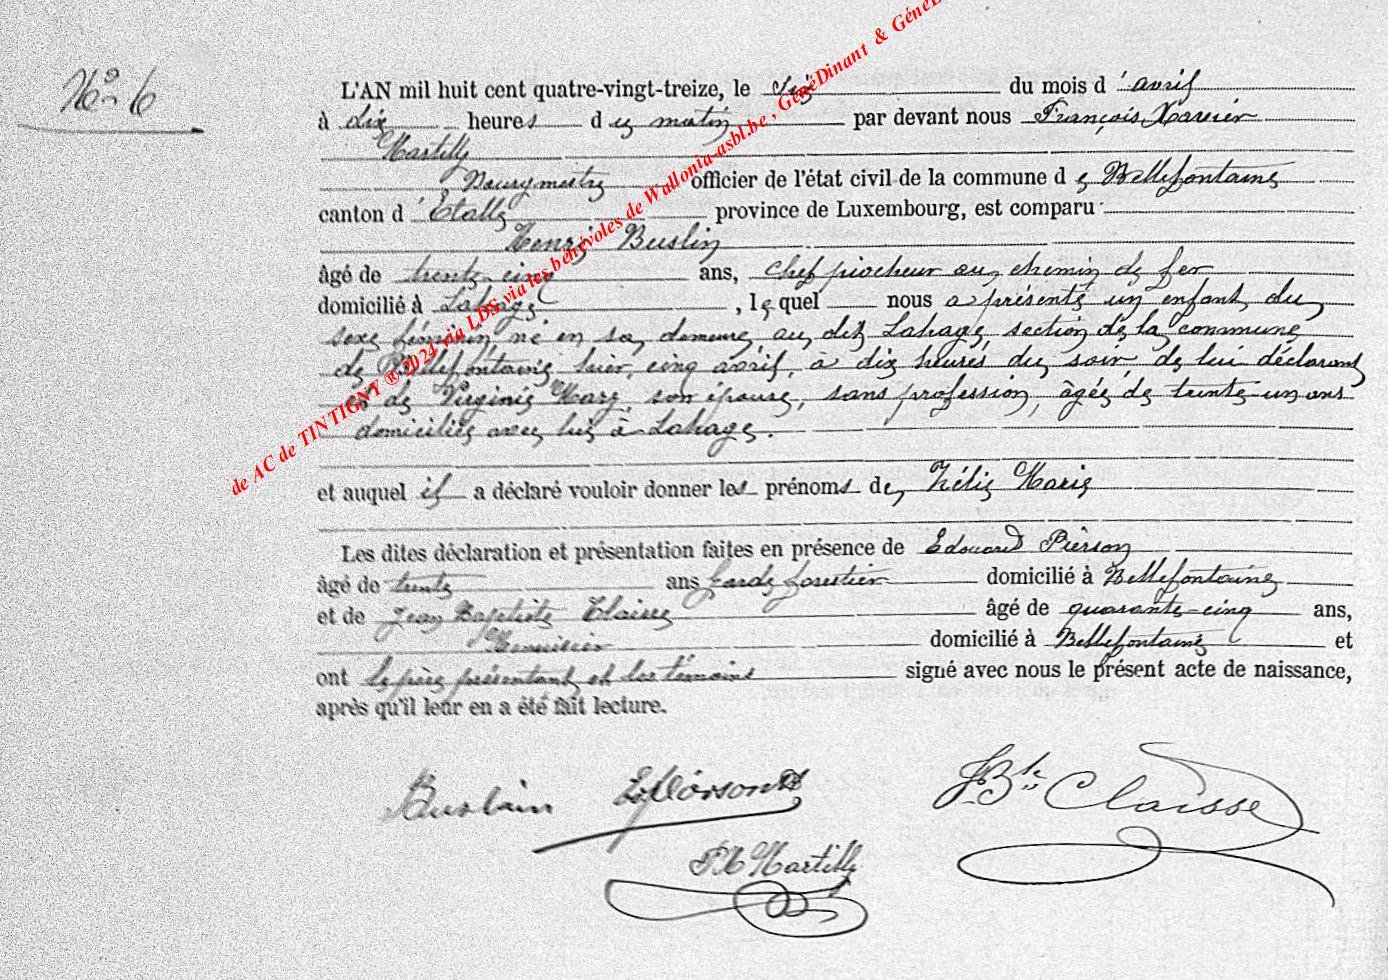 N° 6
L'AN mil huit cent quatre-vingt-treize, le six du mois d'avril
à dix heures du matin par devant nous François Xavier
Martilly
Bourgmestre officier de l'état civil de la commune de Bellefontaine
canton d'Etalle province de Luxembourg, est comparu
Henri Buslin
âgé de trente-cinq ans, chef piocheur au chemin de fer
domicilié à Lahage, lequel nous a présenté un enfant du
sexe féminin, né en sa demeure, au dit Lahage, section de la commune
de Bellefontaine, hier, cinq avril, à dix heures du soir, de lui déclarant
et de Virginie Marg, son épouse, sans profession, âgée de trente-un ans
domiciliée avec lui à Lahage.
et auquel il a déclaré vouloir donner les prénoms de Zélie Marie
Les dites déclaration et présentation faites en présence de Edouard Pierson
âgé de trente ans garde forestier domicilié à Bellefontaine
et de Jean Baptiste Claisse âgé de quarante-cinq ans,
Menuisier domicilié à Bellefontaine et
ont le père présentant et les témoins signé avec nous le présent acte de naissance,
après qu'il leur en a été fait lecture.
Burlain E. Pierson JBte Claisse
FX Martilly
de AC de TINTIGNY ® 2024 via LDS via les bénévoles de Wallonia-asbl.be , GénéDinant & Géné